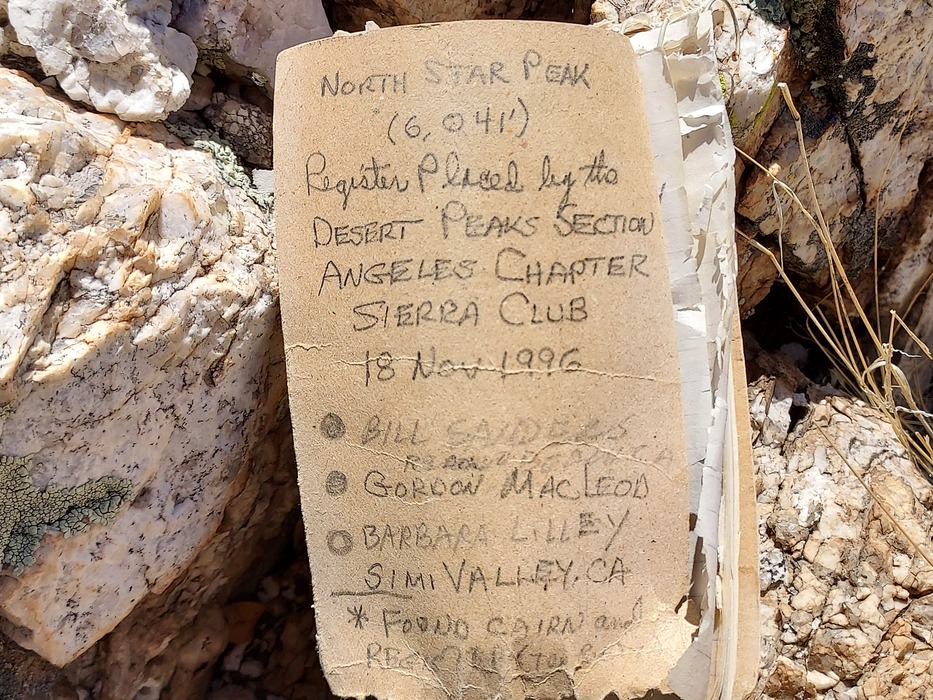 NORTH STAR PEAK
(6,041')
Register Placed by the
DESERT PEAKS SECTION
ANGELES CHAPTER
SIERRA CLUB
18 Nov 1996
BILL SANDERS
CA
GORDON MACLEOD
BARBARA LILLEY
SIMI VALLEY, CA
* FOUND CAIRN and